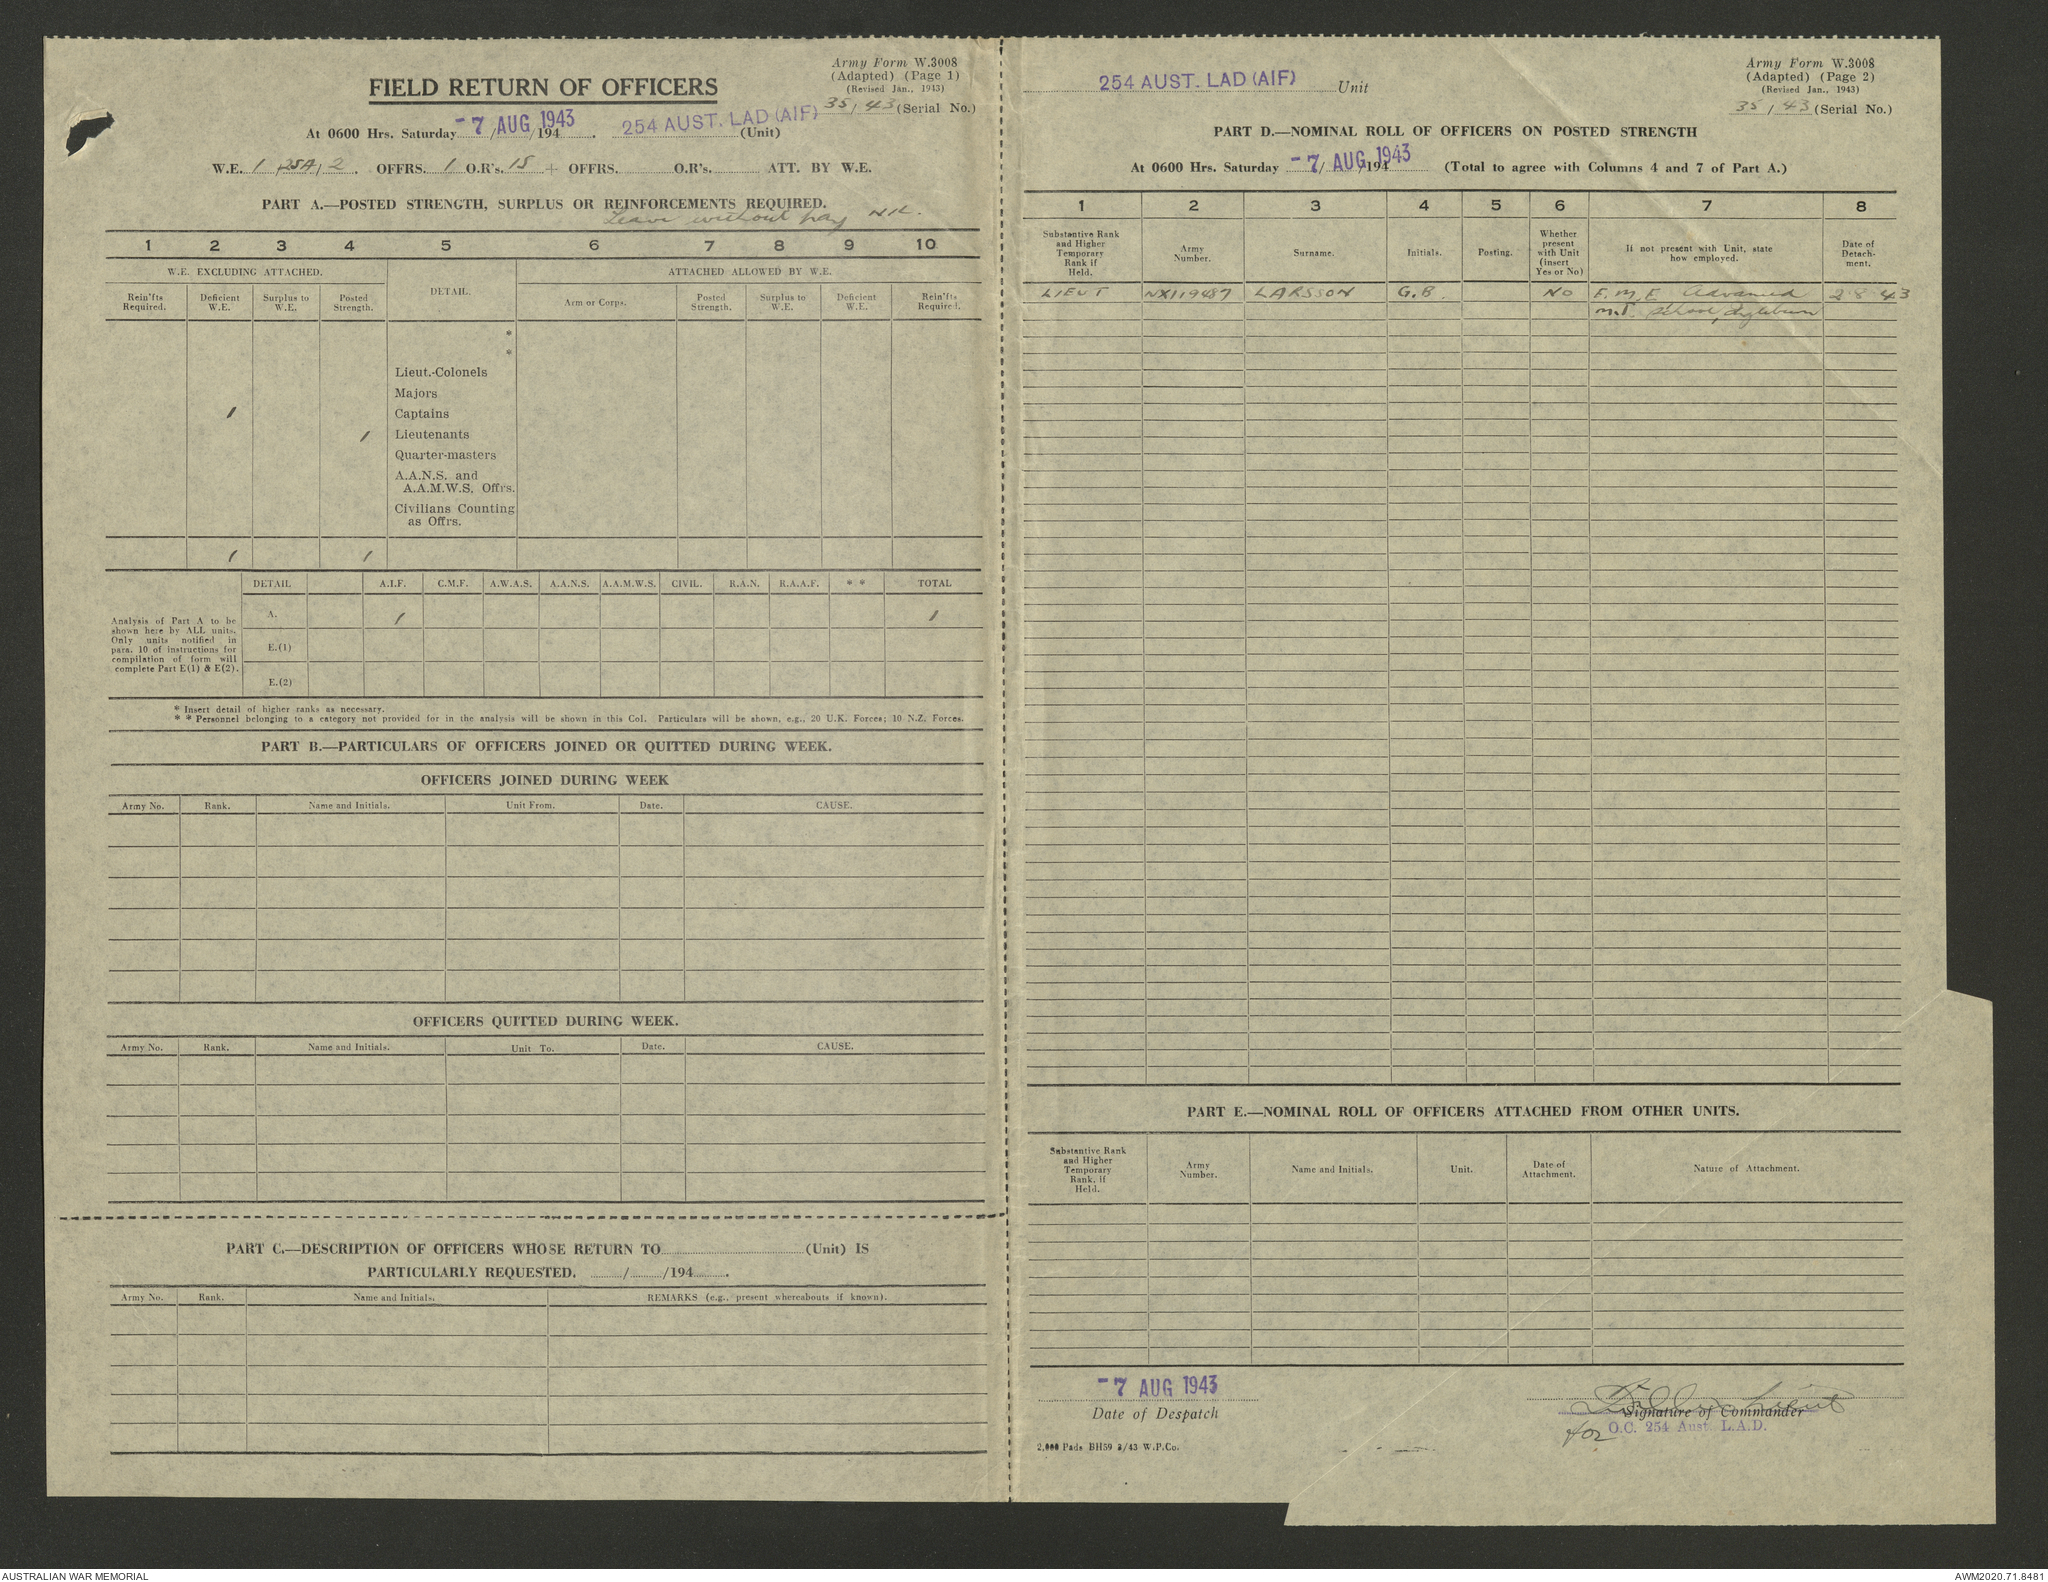 Army Form W.3008
(Adapted) (Page 1)
(Revised Jan., 1943)
35 / 43 (Serial No.)
FIELD RETURN OF OFFICERS
At 0600 Hrs. Saturday -7 AUG 1943 /194 . 254 AUST. LAD (AIF) (Unit)
W.E. 1 / 25A / 2 . OFFRS. 1 O.R's. 15 + OFFRS. O.R's. ATT. BY W.E.
PART A.—POSTED STRENGTH, SURPLUS OR REINFORCEMENTS REQUIRED.
Leave without pay NIL.
1 2 3 4 5 6 7 8 9 10
W.E. EXCLUDING ATTACHED. DETAIL. ATTACHED ALLOWED BY W.E.
Rein'fts Required. Deficient W.E. Surplus to W.E. Posted Strength. Arm or Corps. Posted Strength. Surplus to W.E. Deficient W.E. Rein'fts Required.
*
*
Lieut.-Colonels
Majors
1 Captains
1 Lieutenants
Quarter-masters
A.A.N.S. and
A.A.M.W.S. Offrs.
Civilians Counting
as Offrs.
1 1
DETAIL A.I.F. C.M.F. A.W.A.S. A.A.N.S. A.A.M.W.S. CIVIL. R.A.N. R.A.A.F. * * TOTAL
Analysis of Part A to be
shown here by ALL units.
Only units notified in
para. 10 of instructions for
compilation of form will
complete Part E(1) & E(2).
A. 1 1
E.(1)
E.(2)
* Insert detail of higher ranks as necessary.
* * Personnel belonging to a category not provided for in the analysis will be shown in this Col. Particulars will be shown, e.g., 20 U.K. Forces; 10 N.Z. Forces.
PART B.—PARTICULARS OF OFFICERS JOINED OR QUITTED DURING WEEK.
OFFICERS JOINED DURING WEEK
Army No. Rank. Name and Initials. Unit From. Date. CAUSE.
OFFICERS QUITTED DURING WEEK.
Army No. Rank. Name and Initials. Unit To. Date. CAUSE.
PART C.—DESCRIPTION OF OFFICERS WHOSE RETURN TO (Unit) IS
PARTICULARLY REQUESTED. / /194 .
Army No. Rank. Name and Initials. REMARKS (e.g., present whereabouts if known).
254 AUST. LAD (AIF) Unit
Army Form W.3008
(Adapted) (Page 2)
(Revised Jan., 1943)
35 / 43 (Serial No.)
PART D.—NOMINAL ROLL OF OFFICERS ON POSTED STRENGTH
At 0600 Hrs. Saturday -7 AUG 1943 /194 (Total to agree with Columns 4 and 7 of Part A.)
1 2 3 4 5 6 7 8
Substantive Rank and Higher Temporary Rank if Held. Army Number. Surname. Initials. Posting. Whether present with Unit (insert Yes or No) If not present with Unit, state how employed. Date of Detachment.
LIEUT NX119487 LARSSON G.B. NO E.M.E Advanced 2 8 43
M.T. School, Ingleburn
PART E.—NOMINAL ROLL OF OFFICERS ATTACHED FROM OTHER UNITS.
Substantive Rank and Higher Temporary Rank, if Held. Army Number. Name and Initials. Unit. Date of Attachment. Nature of Attachment.
-7 AUG 1943
Date of Despatch
Lieut
Signature of Commander
for O.C. 254 Aust. L.A.D.
2,000 Pads BH59 3/43 W.P.Co.
AUSTRALIAN WAR MEMORIAL
AWM2020.71.8481